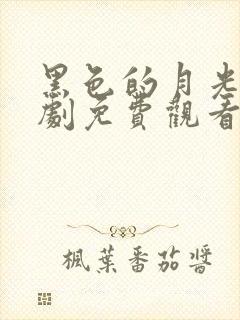 黑色的月光
劇免費觀看
楓葉番茄醬